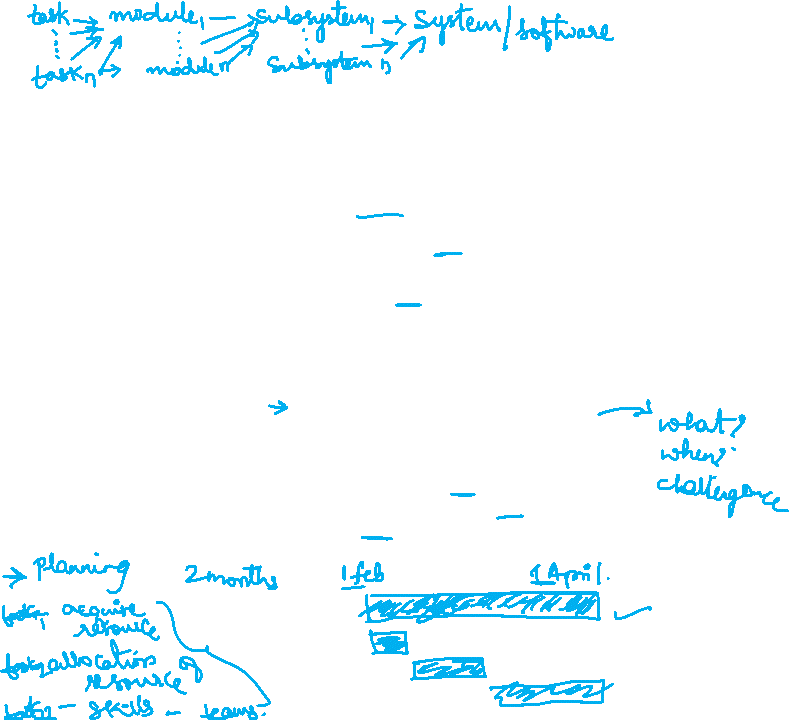 task → module₁ → subsystem₁ → System/software
taskn → modulen subsystem n
what?
when?
challengence
→ Planning 2 months 1 feb 1 April.
task₁ acquire
resource
task₂ allocation of
resource
skills - teams.